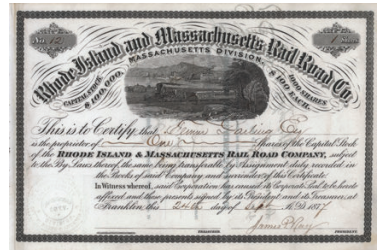 Rhode Island and Massachusetts Rail Road Co.
MASSACHUSETTS DIVISION.
CAPITAL STOCK
$100,000.
1000 SHARES
$100 EACH.
This is to Certify, that
is the proprietor of One Shares of the Capital Stock
of the RHODE ISLAND & MASSACHUSETTS RAIL ROAD COMPANY, subject
to the By-Laws thereof, the same being transferable by Assignment duly
the Books of said Company and surrender of this Certificate.
In Witness whereof, said Corporation has caused its Corporate Seal to be hereto
affixed and these presents signed by its President and its Treasurer, at
Franklin, this 24th day of 1877
James P. Ray
TREASURER.
PRESIDENT.